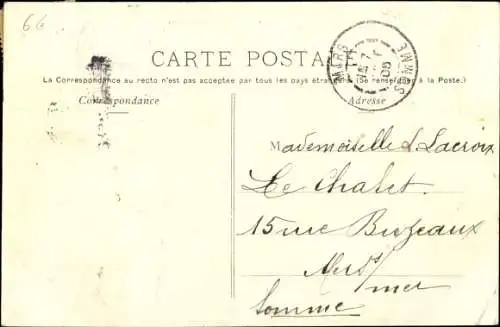 66
CARTE POSTA
La Correspondance au recto n'est pas acceptée par tous les pays étra (Se renseigner à la Poste.)
Correspondance
Adresse
SOMME
Mademoiselle L. Lacroix
Le Chalet.
15 rue Buzeaux
Mers s/ mer
Somme